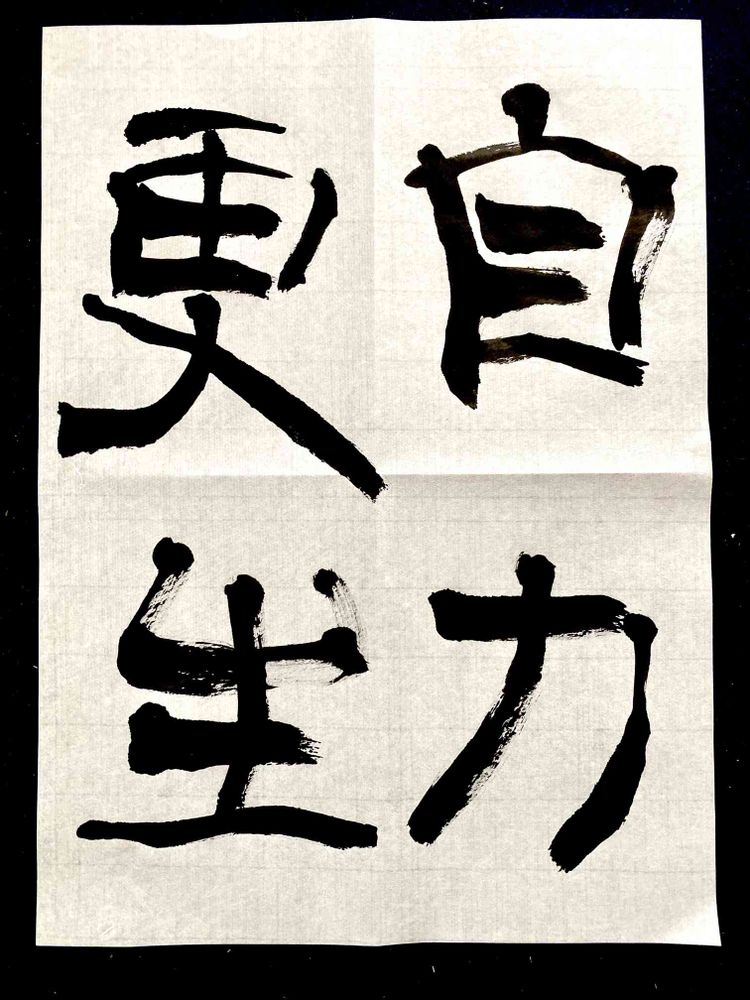 自力
更生